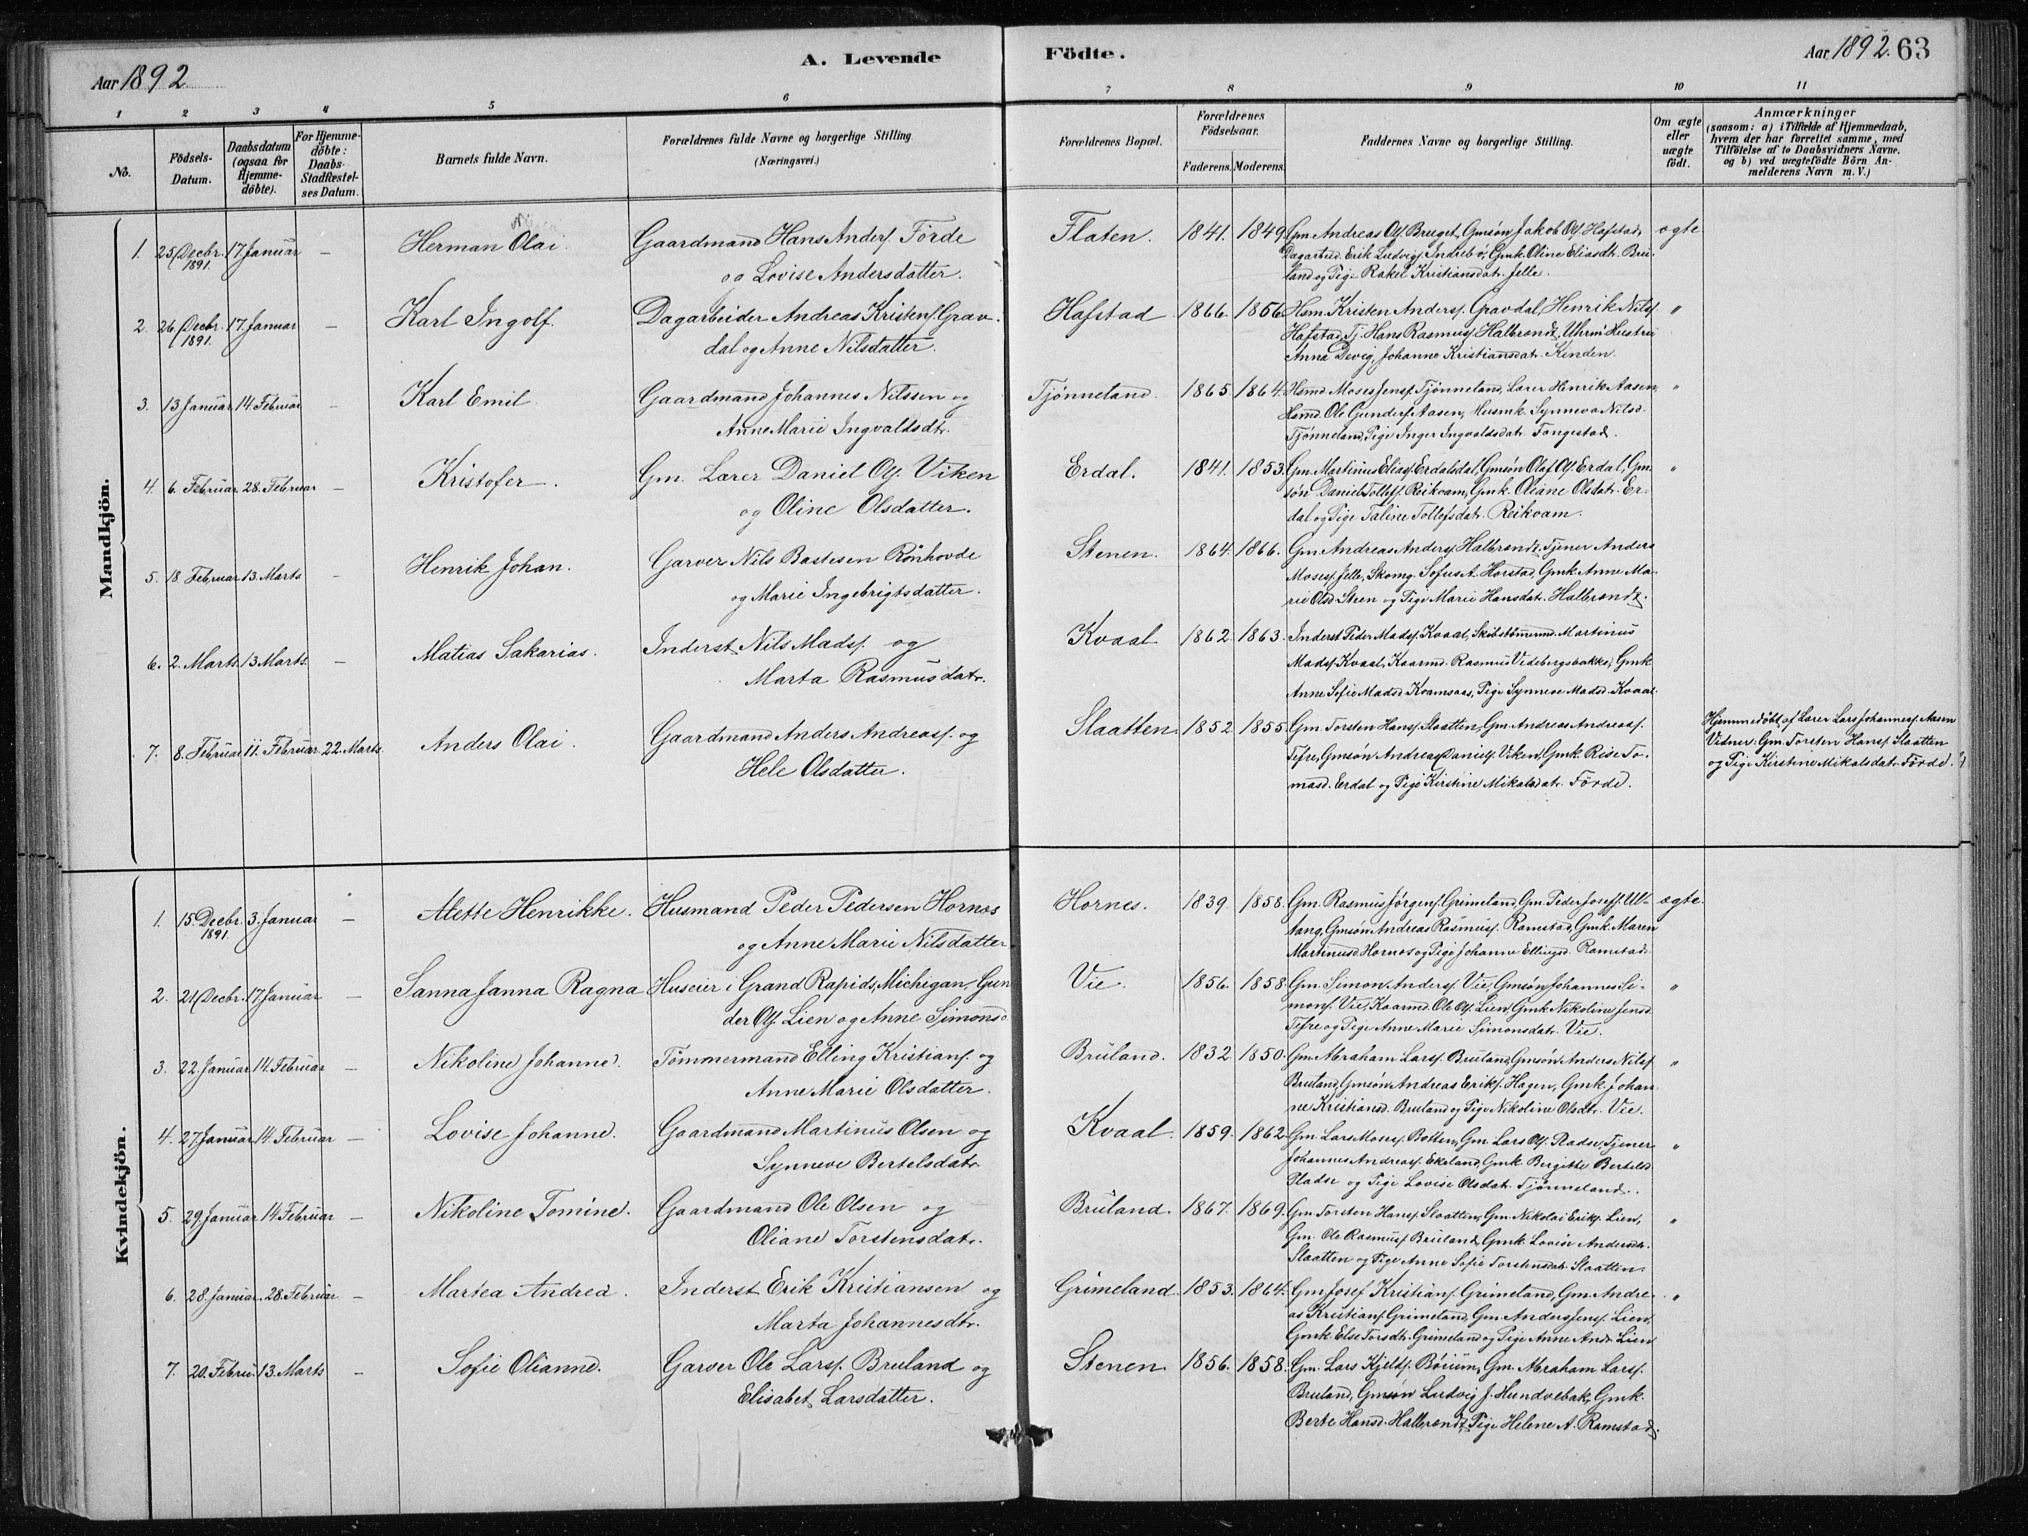 Aar 1892
A. Levende
Födte.
Aar 1892. 63
1 2 3 4 5 6 7 8 9 10 11
No.
Födsels-Datum.
Daabsdatum (ogsaa for Hjemme-döbte).
For Hjemme-döbte: Daabs-Stadfæstel-ses Datum.
Barnets fulde Navn.
Forældrenes fulde Navne og borgerlige Stilling. (Næringsvei.)
Forældrenes Bopæl.
Forældrenes Födselsaar.
Faderens. Moderens.
Faddernes Navne og borgerlige Stilling.
Om ægte eller uægte födt.
Anmærkninger
(saasom: a) i Tilfælde af Hjemmedaab,
hvem der har forrettet samme, med
Tilföielse af to Daabsvidners Navne.
og b) ved uægtefödte Börn An-
melderens Navn m. V.)
Mandkjön.
1. 25 Decbr. 1891. 17 Januar — Herman Olai. Gaardmand Hans Anders. Förde
og Lovise Andersdatter.
Flaten. 1841. 1849. Gm. Andreas Ols. Bruget, Gmsøn Jakob Ols. Hafstad,
Dagarbd. Erik Ludvigs. Indrebö, Gmk. Oline Eliasdt. Bru-
land og Pige Rakel Kristiansdatr. Jelle. ægte
2. 26 Decbr. 1891. 17. Januar — Karl Ingolf. Dagarbeider Andreas Kristens. Grav-
dal og Anne Nilsdatter.
Hafstad 1866. 1856. Hsm. Kristen Anders. Gravdal, Henrik Nils.
Hafstad, Tj. Hans Rasmus. Halbrendt, Uhrm. Hustru
Anna Devig, Johanne Kristiansdatr. Kinden. "
3. 13 Januar 14 Februar — Karl Emil. Gaardmand Johannes Nilssen og
Anne Marie Ingvaldsdtr.
Tjønneland. 1865. 1864. Hsmd. Moses Jens. Tjønneland, Lærer Henrik Aasen,
Hsmd. Ole Gunders. Aasen, Husmk. Synneva Nilsd.
Tjønneland, Pige Inger Ingvaldsdatr. Fongestad. "
4. 6. Februar 28. Februar — Kristofer. Gm. Lærer Daniel Ols. Viken
og Oline Olsdatter.
Erdal. 1841. 1853. Gm. Martinus Elias. Erdalsdal, Gmsøn Olaf Ols. Erdal, Gm-
søn Daniel Tollefs. Reikvam, Gmk. Oliane Olsdatr. Er-
dal og Pige Taline Tollefsdatr. Reikvam. "
5. 18. Februar 13. Marts — Henrik Johan. Garver Nils Bastesen Rönhovde
og Marie Ingebrigtsdatter.
Stenen. 1864. 1866. Gm. Andreas Anders. Halbrendt, Tjener Anders
Moses. Jelle, Skomg. Sofus A. Horstad, Gmk. Anne Ma-
rie Olsd. Steen og Pige Marie Hansdatr. Halbrendt.
6. 2. Marts. 13. Marts. — Matias Sakarias. Inderst Nils Mads. og
Marta Rasmusdatr.
Kvaal 1862. 1863. Inderst Peder Mads. Kvaal, Martinus
Mads. Kvaal, Kaarmd. Rasmus Videbergsbakke, Gmk.
Anne Sofie Madsd. Kvamsaas, Pige Synneve Madsd. Kvaal.
7. 8. Februar 11. Februar. 22. Marts. Anders Olai. Gaardmand Anders Andreas. og
Hele Olsdatter.
Slaatten. 1852. 1855. Gm. Torsten Hans. Slaatten, Gm. Andreas Andreas.
Tefre, Gmsøn Andreas Daniels. Viken, Gmk. Rise To-
masd. Erdal og Pige Kirstine Mikalsdatr. Förde.
Hjemmedöbt af Lærer Lars Johannes. Aasen
Vidner: Gm. Torsten Hans. Slaatten
og Pige Kirstine Mikalsdatr. Förde.
Kvindekjön.
1. 15. Decbr. 1891. 3. Januar — Alette Henrikke. Husmand Peder Pedersen Hornes
og Anne Marie Nilsdatter
Hornes. 1839. 1858. Gm. Rasmus Jörgens. Grimeland, Gm. Peder Josefs. Ul-
tang, Gmsøn Andreas Rasmus. Ramstad, Gmk. Maren
Martinusd. Hornes og Pige Johanne Ellingsd. Ramstad. ægte.
2. 21 Decbr. 17 Januar — Sanna Janna Ragna Huseier i Grand Rapids, Michigan, Gun-
der Ols. Lien og Anne Simonsd.
Vie. 1856. 1858. Gm. Simon Anders. Vie, Gmsøn Johannes Si-
mons. Vie, Kaarmd. Ole Ols. Lien, Gmk. Nikoline Jensd.
Tefre og Pige Anne Marie Simonsdatr. Vie. "
3. 22. Januar 14. Februar — Nikoline Johanne. Tömmermand Elling Kristians. og
Anne Marie Olsdatter.
Bruland. 1832. 1850. Gm. Abraham Lars. Bruland, Gmsøn Anders Nils.
Bruland, Gmsøn Andreas Eriks. Hagen, Gmk. Johan-
ne Kristiansd. Bruland og Pige Nikoline Olsdtr. Vie. "
4. 27. Januar 14. Februar — Lovise Johanne. Gaardmand Martinus Olsen og
Synneve Bertelsdatr.
Kvaal. 1859. 1862. Gm. Lars Moses. Botten, Gm. Lars Ols. Fladse, Tjener
Johannes Andreas. Ekeland, Gmk. Bergitte Bertelsd.
Fladse og Pige Lovise Olsdatr. Tjønneland. "
5. 29. Januar 14. Februar — Nikoline Tomine. Gaardmand Ole Olsen og
Oliane Torstensdatr.
Bruland. 1867. 1869. Gm. Torsten Hans. Slaatten, Gm. Nikolai Eriks. Lien,
Gm. Ole Rasmus. Bruland, Gmk. Lovise Andersdr.
Slaatten og Pige Anne Sofie Torstensdatr. Slaatten. "
6. 28. Januar. 28. Februar — Martea Andrea. Inderst Erik Kristiansen og
Marta Johannesdtr.
Grimeland. 1853. 1864. Gm. Josef Kristians. Grimeland, Gm. Andre-
as Kristians. Grimeland, Gm. Anders Jens. Lien,
Gmk. Else Torsdtr. Grimeland og Pige Anne And. Lien "
7. 20. Februar 13. Marts — Sofie Olianne. Garver Ole Lars. Bruland og
Elisabet Larsdatter.
Stenen 1856. 1858. Gm. Lars Kjelds. Böium, Gm. Abraham Lars.
Bruland, Gmsøn Ludvig J. Hundvebak, Gmk.
Berte Hansd. Halbrendt, Pige Helene A. Ramstad.